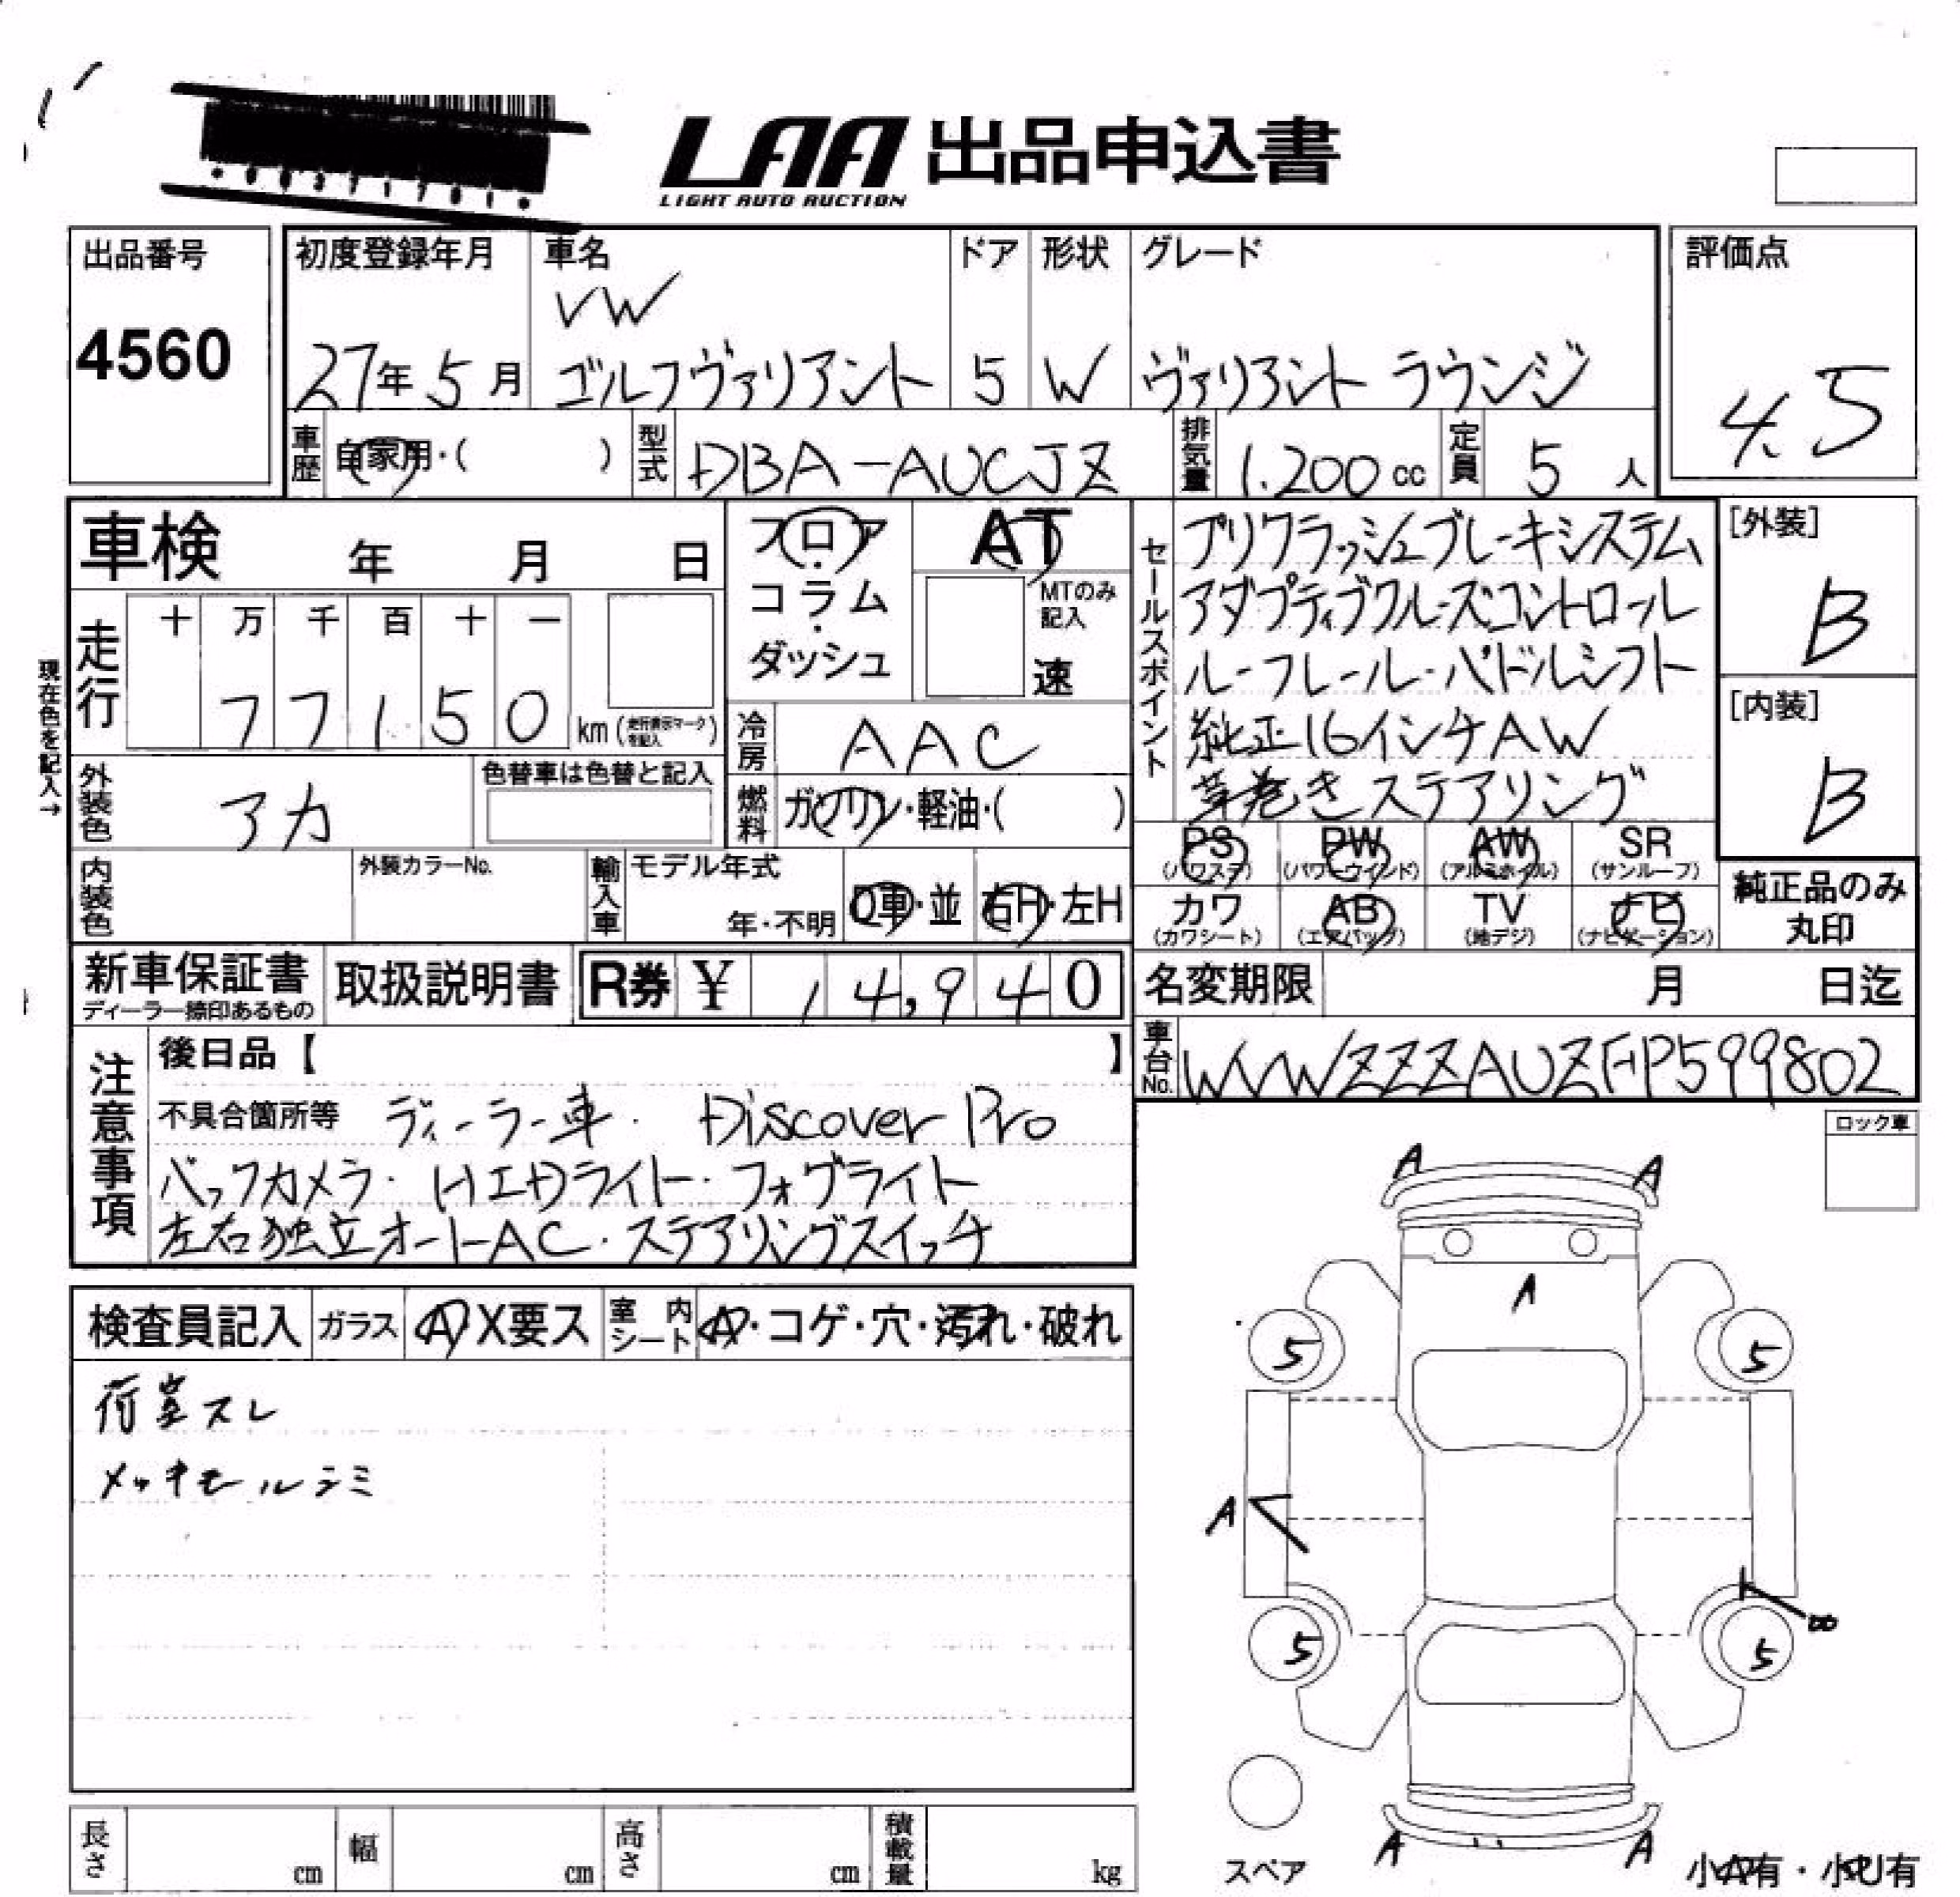 LAA 出品申込書
LIGHT AUTO AUCTION
出品番号
4560
初度登録年月
27年 5月
車名
VW
ゴルフヴァリアント
ドア
5
形状
W
グレード
ヴァリアント ラウンジ
評価点
4.5
車歴
自家用・( )
型式
DBA-AUCJZ
排気量
1.200 cc
定員
5 人
車検 年 月 日
フロア
・
コラム
・
ダッシュ
AT
MTのみ
記入
速
セールスポイント
プリクラッシュブレーキシステム
アダプティブクルーズコントロール
ルーフレール・パドルシフト
純正16インチAW
革巻きステアリング
[外装]
B
[内装]
B
現在色を記入→
走行
十 万 千 百 十 一
7 7 1 5 0
km (走行表示マークを記入)
冷房
AAC
外装色
アカ
色替車は色替と記入
燃料
ガソリン・軽油・( )
PS
(パワステ)
PW
(パワーウインド)
AW
(アルミホイル)
SR
(サンルーフ)
内装色
外装カラーNo.
輸入車
モデル年式
年・不明
D車・並
右H・左H
カワ
(カワシート)
AB
(エアバッグ)
TV
(地デジ)
ナビ
(ナビゲーション)
純正品のみ
丸印
新車保証書
ディーラー捺印あるもの
取扱説明書
R券 ¥ 14,940
名変期限 月 日迄
車台No.
WVWZZZAUZFP599802
注意事項
後日品【 】
不具合箇所等 ディーラー車・ Discover Pro
バックカメラ・HIDライト・フォグライト
左右独立オートAC・ステアリングスイッチ
ロック車
検査員記入
ガラス
A X要ス
室内シート
A・コゲ・穴・汚れ・破れ
荷室スレ
メッキモールシミ
A
A
A
5
5
A
5
5
A
A
スペア
小A有・小U有
長さ cm
幅 cm
高さ cm
積載量 kg